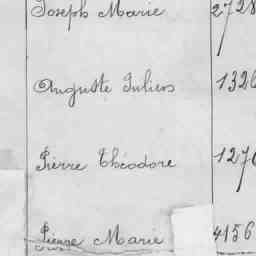 Joseph Marie 2728
Auguste Juliens 1326
Pierre Théodore 1270
Pierre Marie 4156